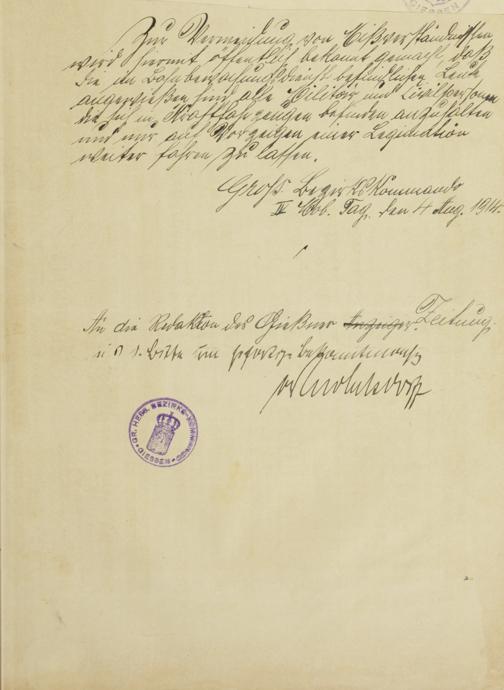 Zur Vermeidung von Mißverständnissen
wird hiermit öffentlich bekannt gemacht, daß
die im Bahnbewachungsdienst befindlichen Leute
angewiesen sind alle Militair und Civilpersonen
die sich in Kraftfahrzeugen befinden anzuhalten
und nur nach Vorzeigen einer Legitimation
weiter fahren zu lassen.
Groß. Bezirkskommando
IV Mob. Tag, den 4 Aug. 1914.
An die Redaktion des Gießner Anzeiger Zeitung
bitte um sofortige Bekanntmachung
GR. HESS. BEZIRKS-KOMMANDO
GIESSEN